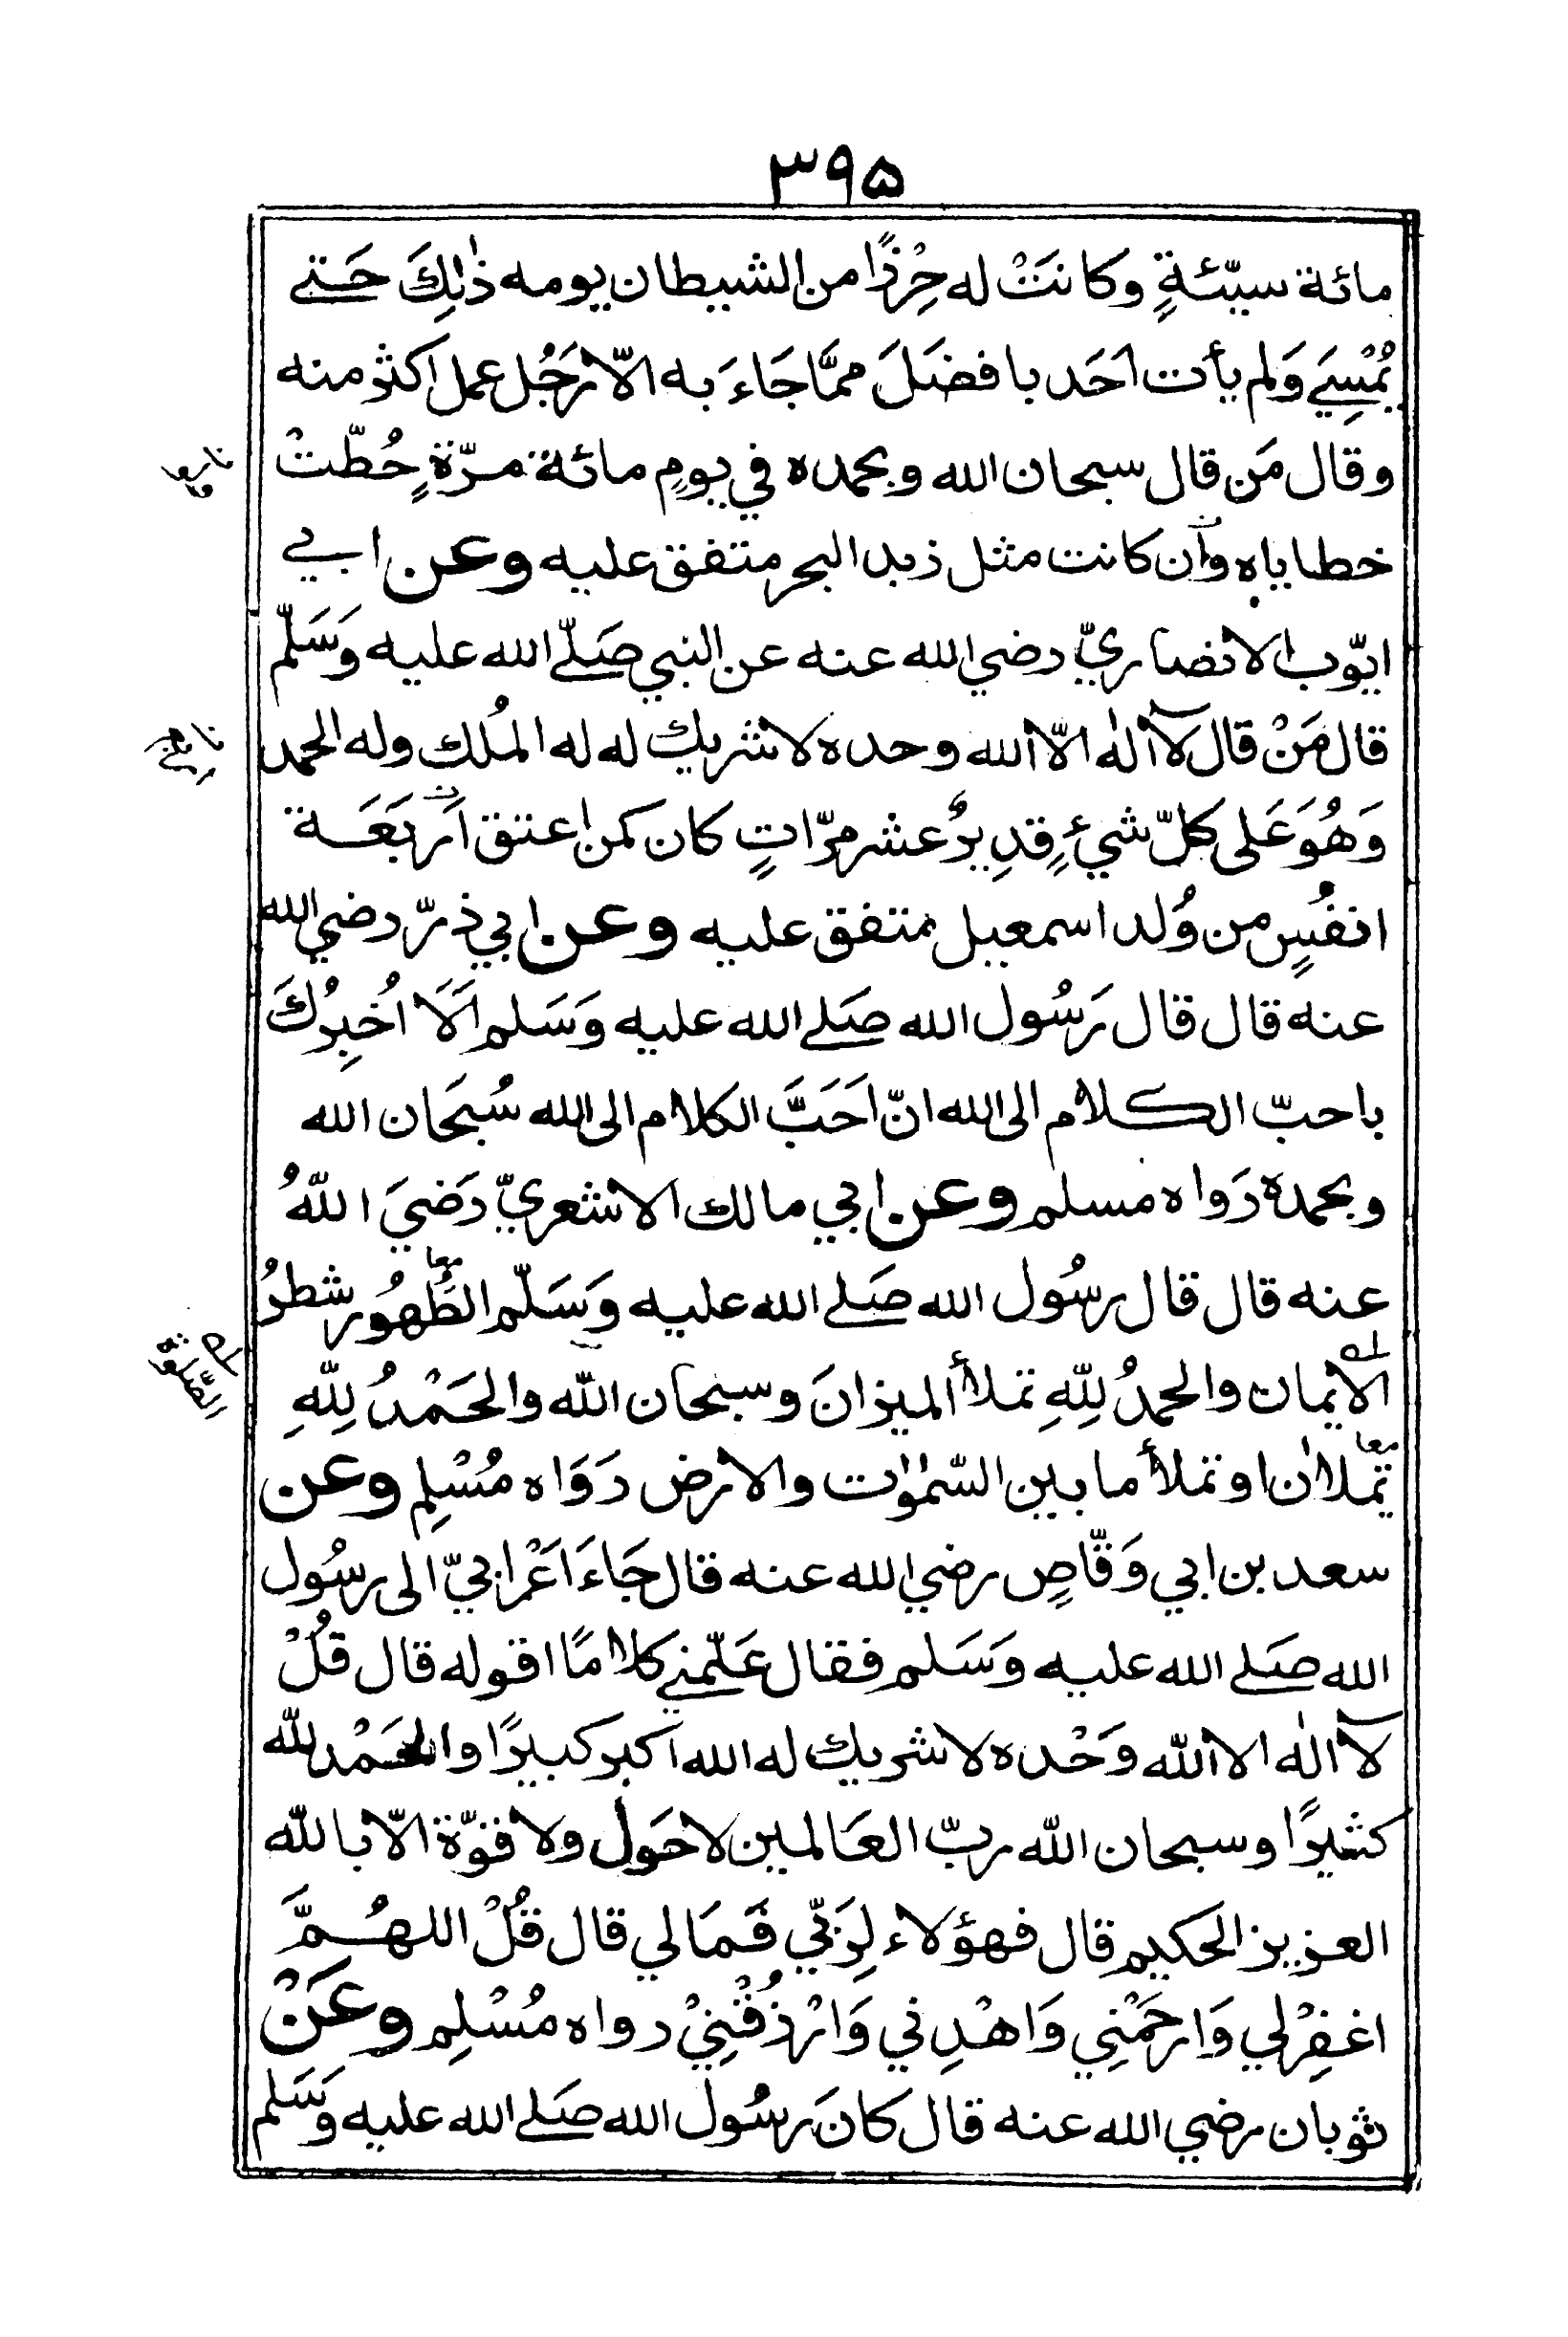 ۳۹۵
مائة سيّئةٍ وكانتْ له حِرْزًا من الشيطان يومه ذٰلِكَ حَتے
يُمْسِيَ وَلم يأت اَحَد بافضَلَ ممَّا جَاءَ به الّا رَجُل عمل اكثر منه
وقال مَن قال سبحان الله وبحمده في يومٍ مائة مرّةٍ حُطّتْ
خطاياه وان كانت مثل زبد البحر متفق عليه وعن ابي
ايّوب الانصاريّ رضي الله عنه عن النبي صَلّے الله عليه وَسَلّم
قال مَنْ قال لآ الٰه الّا الله وحده لا شريك له له المُلك وله الحمد
وَهُوَ عَلى كلّ شيءٍ قدِيرٌ عشر مرّاتٍ كان كمن اعتق اَربَعَة
انفُسٍ من وُلد اسمعيل متفق عليه وعن ابي ذرّ رضي الله
عنه قال قال رَسُول الله صَلے الله عليه وَسَلم اَلَا اُخبِرُكَ
باحبّ الكلام الى الله انّ اَحَبَّ الكلام الى الله سُبحَان الله
وبحمده رَواه مسلم وعن ابي مالك الاشعريّ رَضيَ اللّٰهُ
عنه قال قال رسُول الله صَلے الله عليه وَسَلّم الطُّهُور شطرُ
الايمان والحمدُ لِلّٰهِ تملأ الميزانَ وسبحان اللّٰه والحَمْدُ لِلّٰهِ
تملاٰن او تملأ ما بين السّمٰوٰت والارض رَوَاه مُسْلِم وعن
سعد بن ابي وَقّاصٍ رضي الله عنه قال جَاءَ اَعْرابيّ الى رسُول
الله صَلے الله عليه وَسَلم فقال عَلّمني كلامًا اقوله قال قُلْ
لآ الٰه الا اللّٰه وَحْده لا شريك له الله اكبر كبيرًا والحَمْد للّٰه
كثيرًا وسبحان اللّٰه ربّ العَالمين لا حَول ولا قوّة الّا باللّٰه
العزيز الحكيم قال فهؤلاء لِرَبّي فَمَا لي قال قُلْ اللهُمَّ
اغفِرْ لي وَارحَمْنِي وَاهْدِني وَارْزُقْنِيْ رواه مُسْلِم وعَنْ
ثوبان رضي الله عنه قال كانَ رسُول الله صَلے الله عليه وَسَلم
الصَّلٰوة